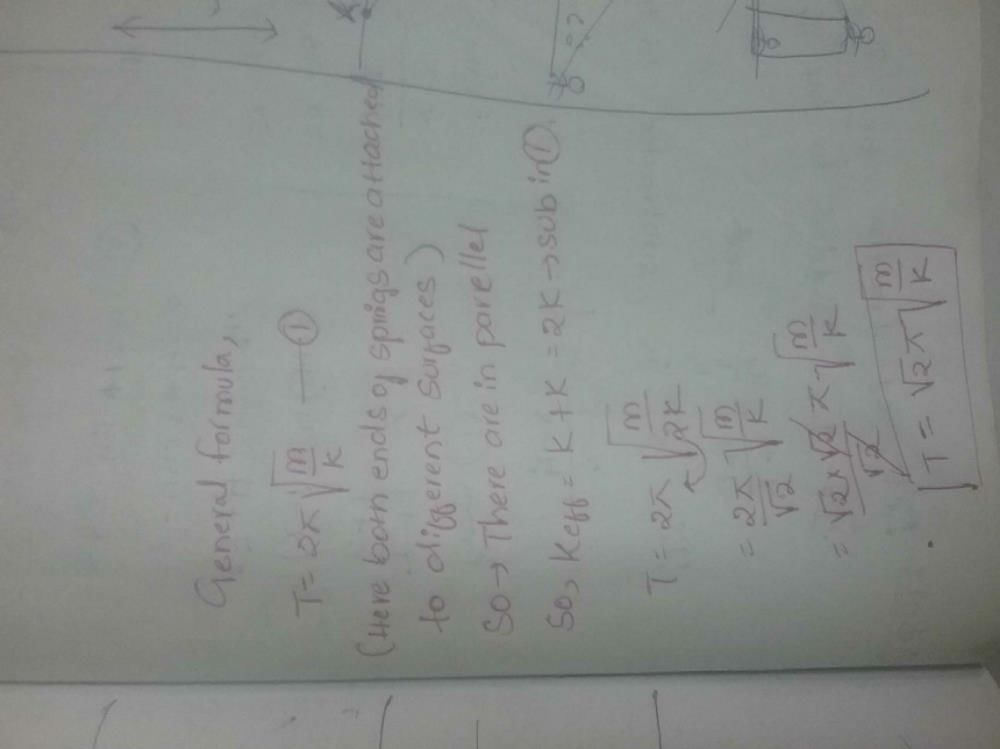 General formula,
T = 2π √m/k — ①
(Here both ends of springs are attached
to different surfaces)
So → There are in parellel
So, Keff = K + K = 2K → sub in ①.
T = 2π √m/2K
= 2π/√2 √m/K
= √2 × √2/√2 π √m/K
T = √2 π √m/K